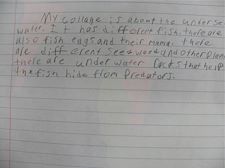 My collage is about the under se
water. It has different fish. there are
also fish eggs and their mama. there
are different seeweed and other plants
there are under water rocks that help
the fish hide from Predators.